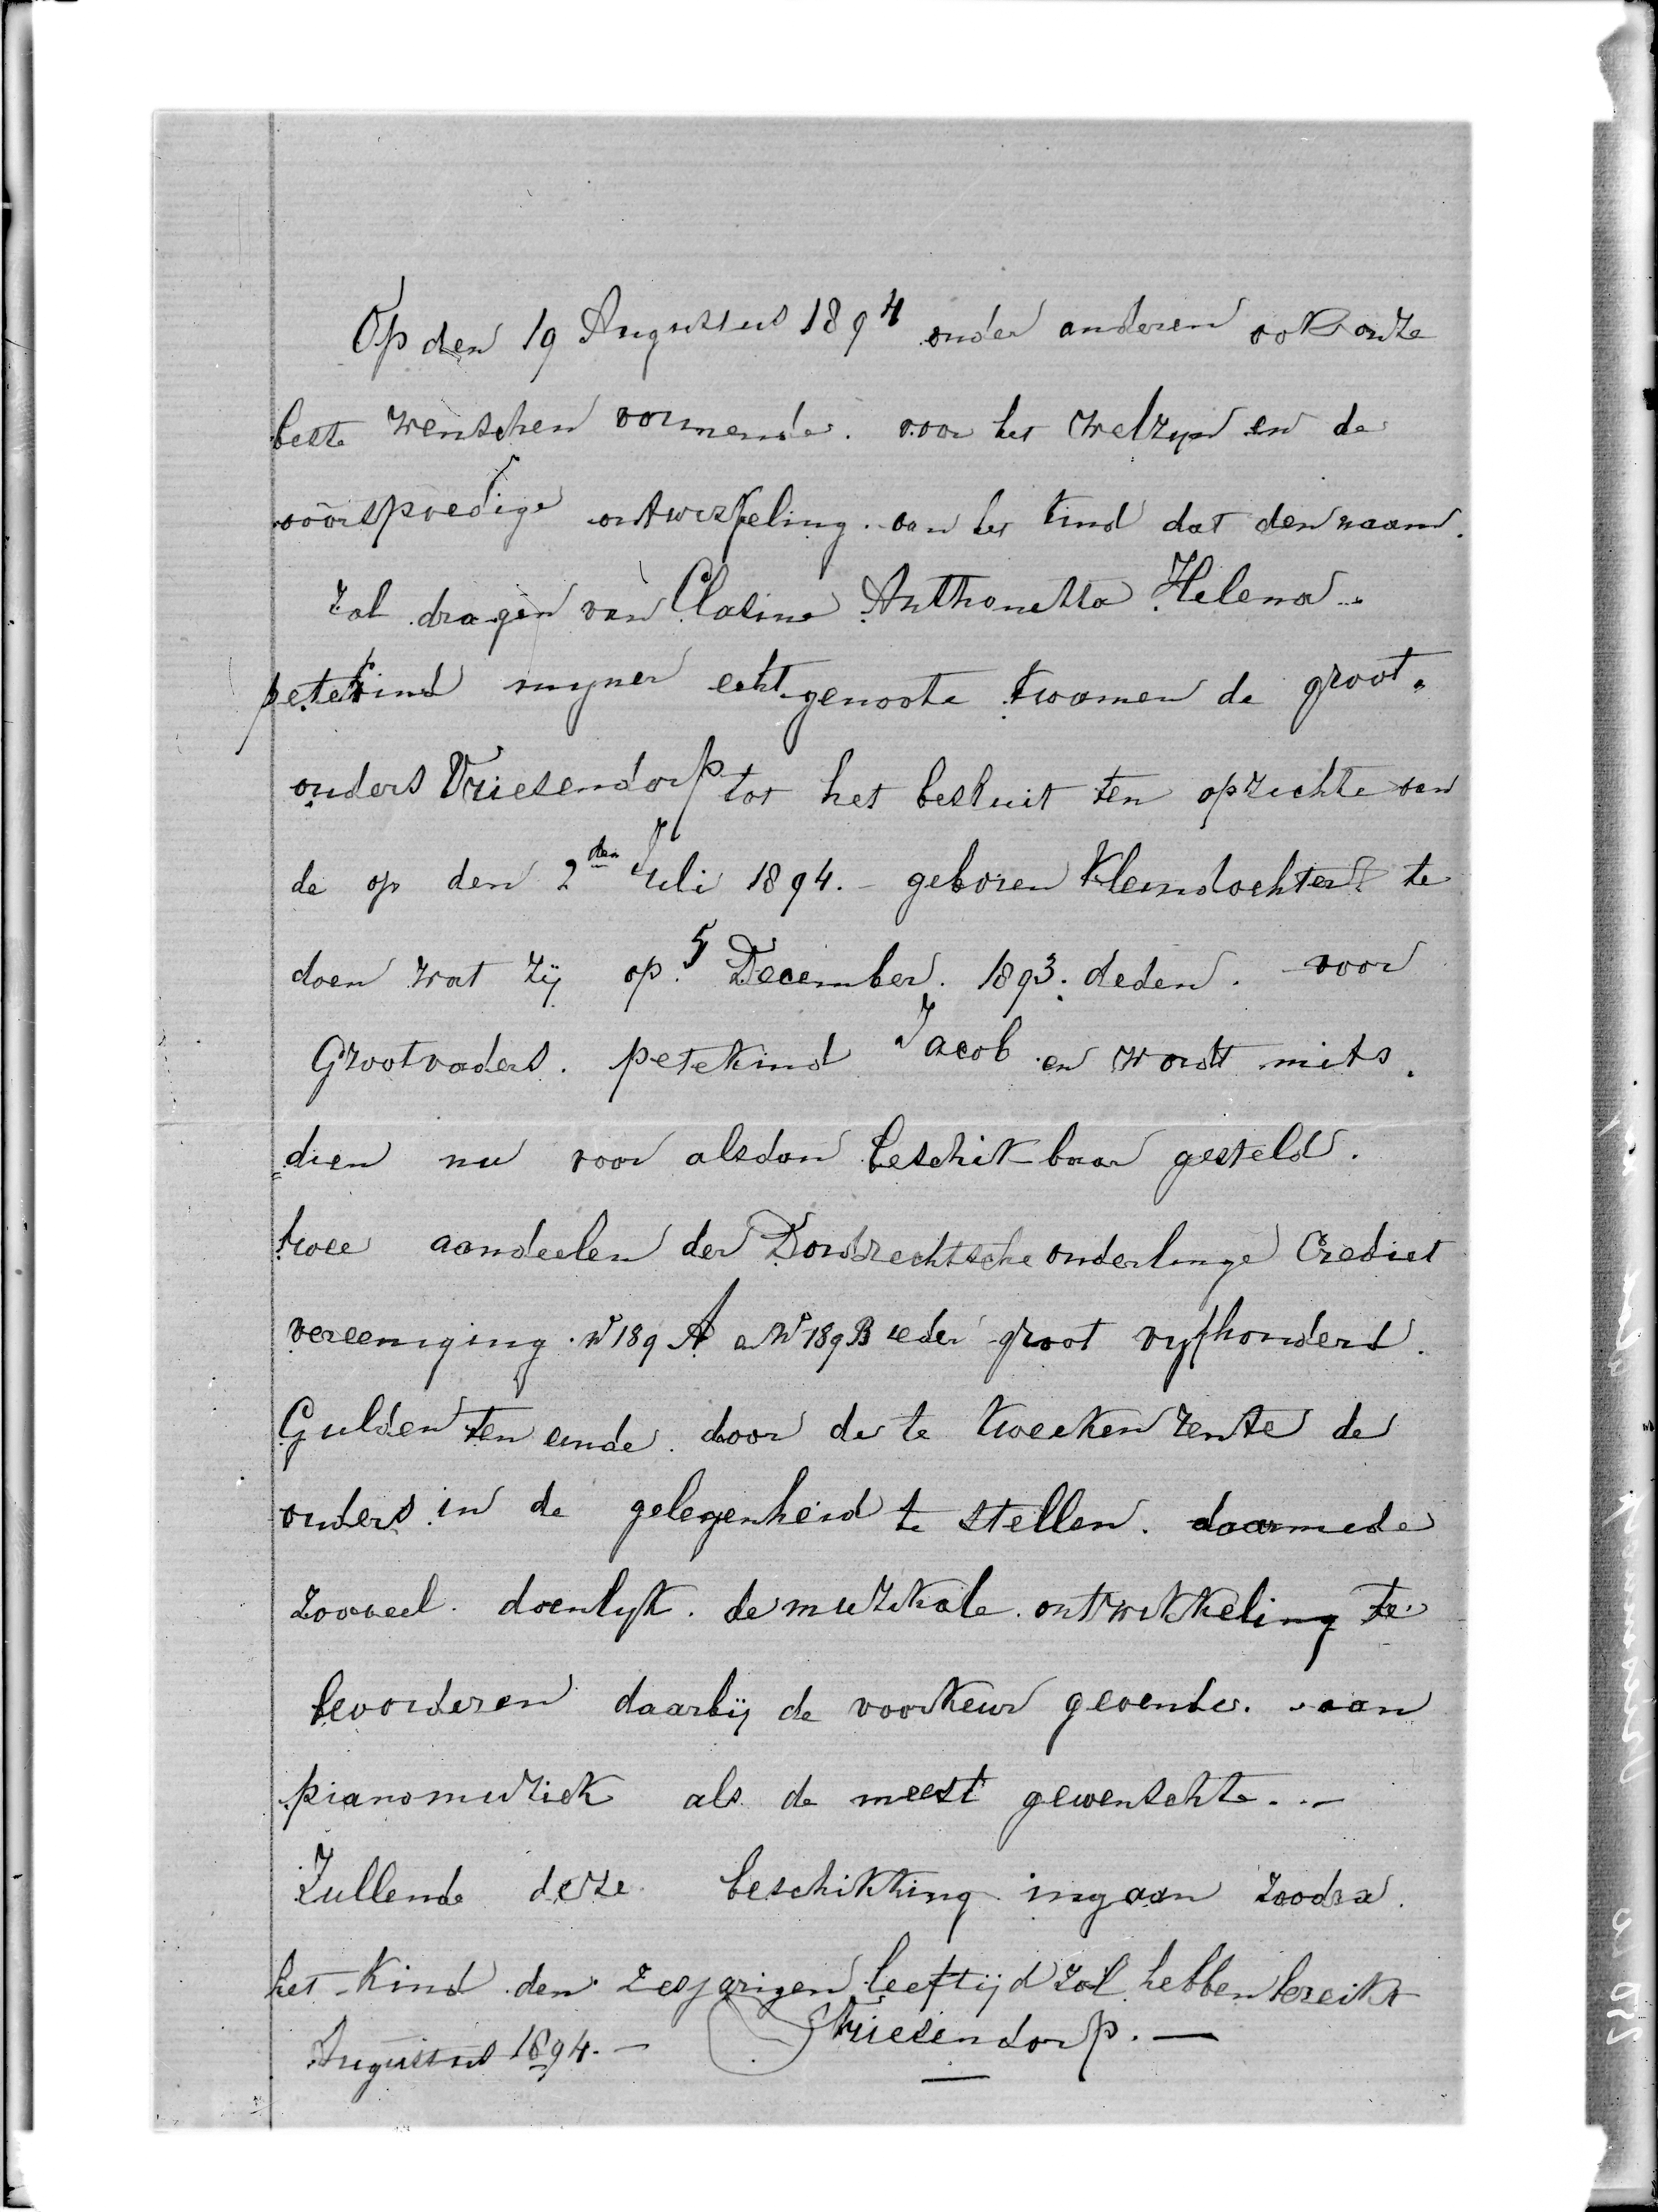 Op den 19 Augustus 1894 onder anderen ook onze
beste wenschen vormende. voor het welzyn en de
voorspoedige ontwikkeling. van het kind dat den naam.
zal dragen van Clasina Anthonetta Helena
petekind myner echtgenoote kwamen de groot„
ouders Vriesendorp tot het besluit ten opzichte van
de op den 2den Juli 1894.- geboren kleindochter te
doen wat zij op 5 December. 1893. deden. voor
Grootvaders. petekind Jacob en wordt mits„
dien nu voor alsdan beschikbaar gesteld.
twee aandeelen der Dordrechtsche onderlinge Crediet
vereeniging. No 189 A en No 189 B ieder groot vyfhonderd.
Gulden ten einde. door de te kweeken rente de
ouders in de gelegenheid te stellen. daarmede
zooveel doenlyk. de muzikale. ontwikkeling te
bevorderen daarbij de voorkeur gevende. aan
pianomuziek als de meest gewenschte. . —
Zullende deze beschikking ingaan zoodra.
het kind den zesjarigen leeftijd zal hebben bereikt
Augustus 1894. — Vriesendorp. —